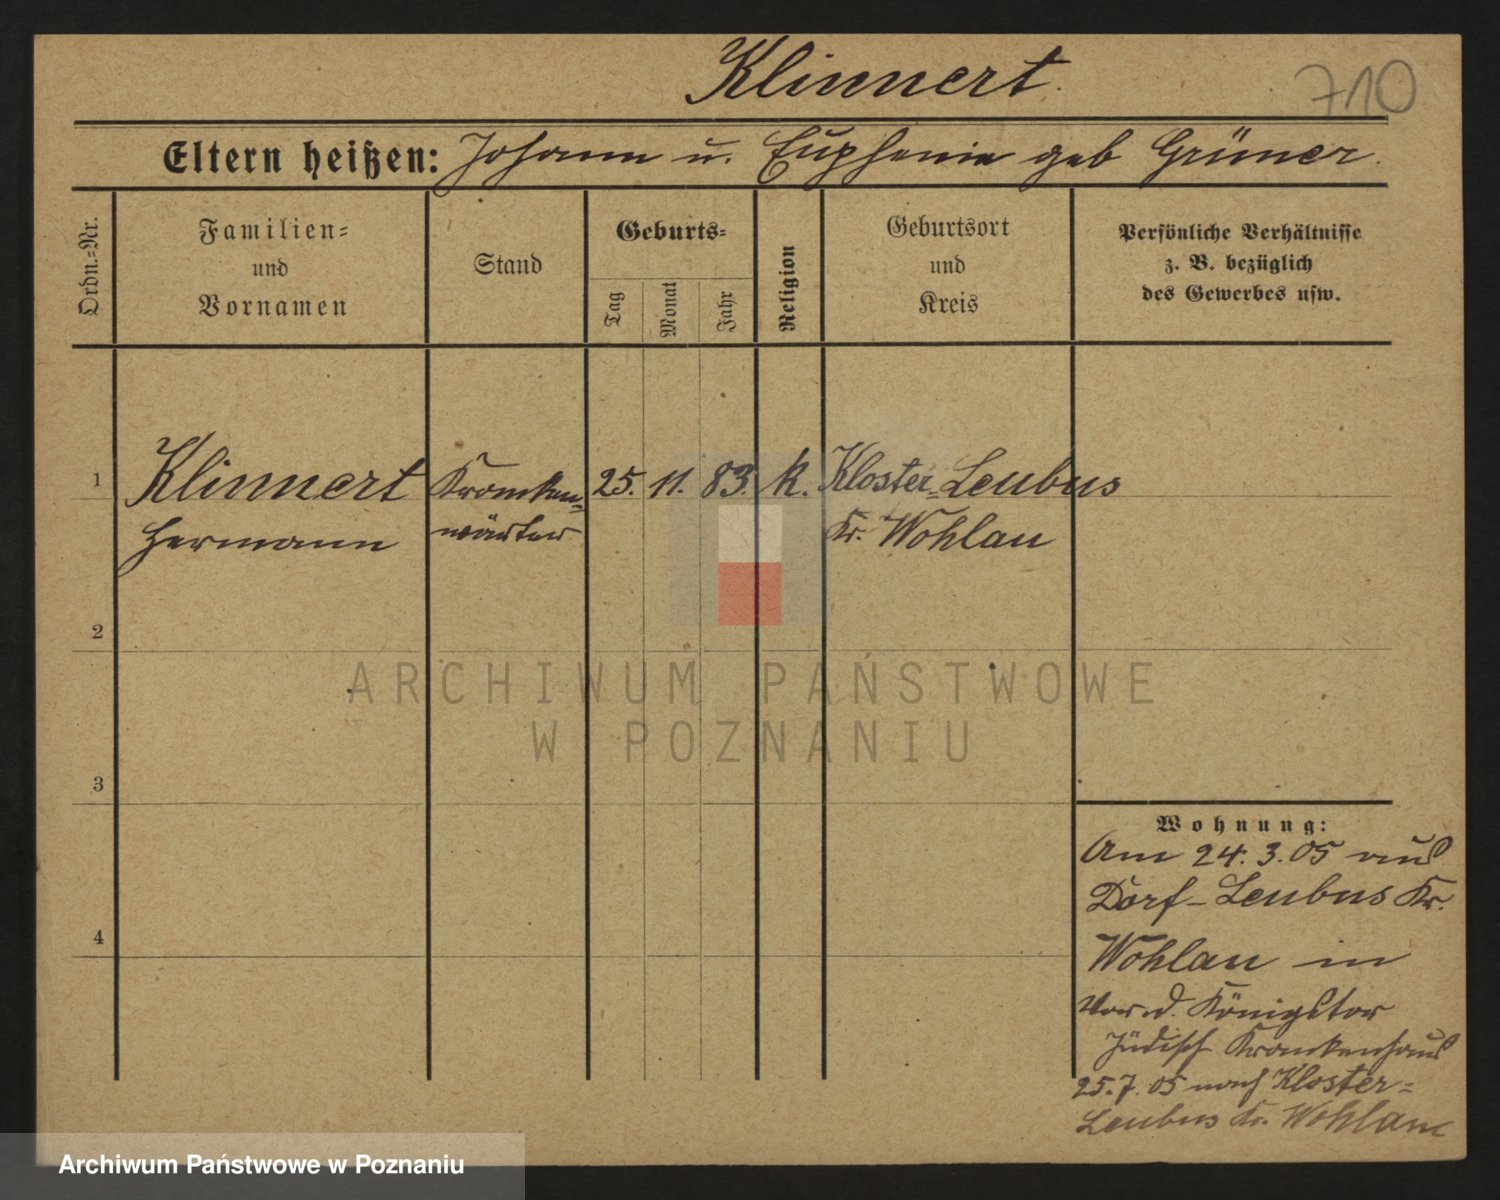 Klinnert.
710
Eltern heißen: Johann u. Euphemia geb Grüner.
Ordn.-Nr.
Familien-
und
Vornamen
Stand
Geburts-
Tag
Monat
Jahr
Religion
Geburtsort
und
Kreis
Persönliche Verhältnisse
z. B. bezüglich
des Gewerbes usw.
1 Klinnert Kranken- 25. 11. 83. k. Kloster-Leubus
Hermann wärter Kr. Wohlau
2
ARCHIWUM PAŃSTWOWE
W POZNANIU
3
Wohnung:
Am 24.3.05 aus
Dorf-Leubus Kr.
4
Wohlau in
Vor d. Königstor
Jüdisch Krankenhaus
25.7.05 nach Kloster-
Leubus Kr. Wohlau
Archiwum Państwowe w Poznaniu